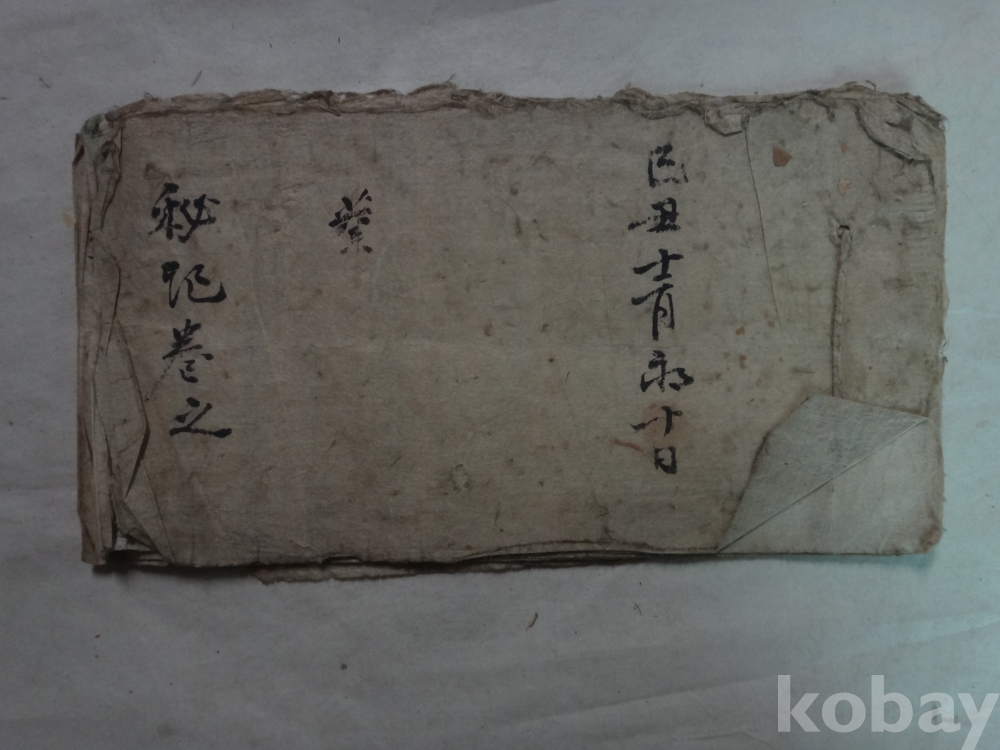 己丑十二月初十日
秘記卷之
kobay